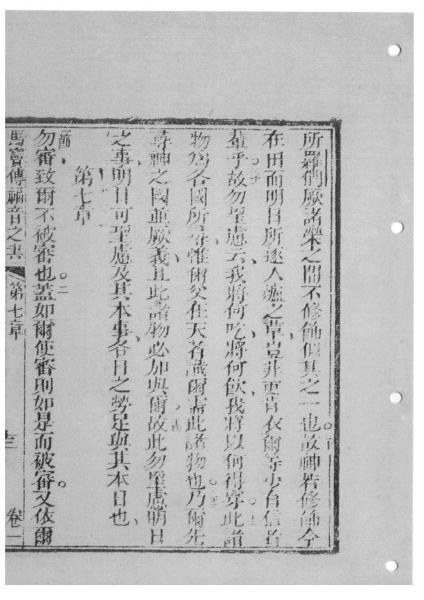 所羅們厥諸榮之間不修飾但其之一也故神若修飾今
在田而明日所逐入爐之草豈非更肯衣爾等少自信者
輩乎故勿罣慮云我將何吃將何飲我將以何得穿此諸
物爲各國所尋惟爾父在天者識爾需此諸物也乃爾先
尋神之國並厥義且此諸物必加與爾故此勿罣慮明日
之事明日可罣慮及其本事各日之勞足與其本日也
第七章
節勿審致爾不被審也二蓋如爾使審則如是而被審又依爾
馬竇傳福音之書 第七章 卷一